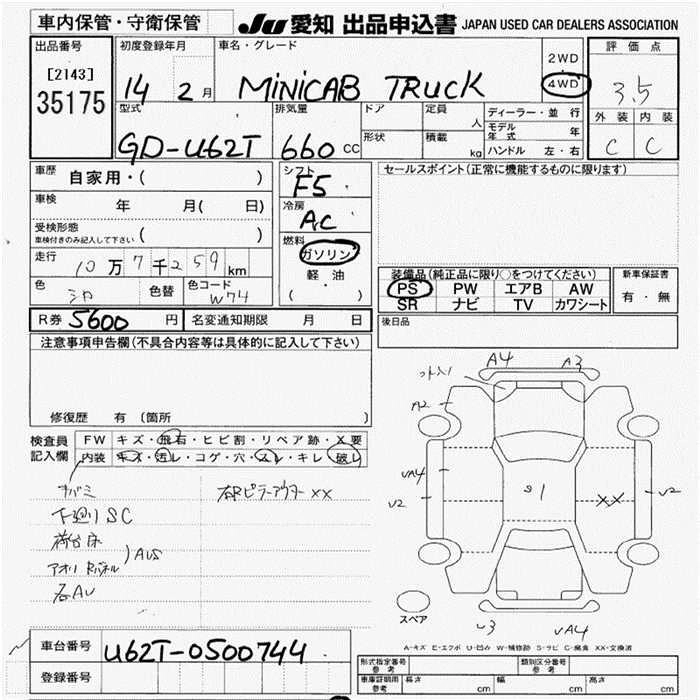 車内保管・守衛保管 JU 愛知 出品申込書 JAPAN USED CAR DEALERS ASSOCIATION
出品番号
[2143]
35175
初度登録年月
14 2月
車名・グレード
MINICAB TRUCK
2WD
・
4WD
評価点
3.5
外装 内装
C C
型式
GD-U62T
排気量
660 cc
ドア
形状
定員
人
積載
kg
ディーラー・並行
モデル年式 年
ハンドル 左・右
車歴
自家用・( )
車検
年 月( 日)
受検形態
車検付きのみ記入して下さい ( )
走行
10万7千259km
色
シロ
色替
色コード
W74
シフト
F5
冷房
AC
燃料
ガソリン
・
軽油
( ・ )
セールスポイント(正常に機能するものに限ります)
装備品(純正品に限り○をつけてください)
PS PW エアB AW
SR ナビ TV カワシート
新車保証書
有・無
後日品
R券 5600 円 名変通知期限 月 日
注意事項申告欄(不具合内容等は具体的に記入して下さい)
修復歴 有 (箇所 )
検査員
記入欄
FW キズ・飛石・ヒビ割・リペア跡・X要
内装 キズ・汚レ・コゲ・穴・スレ・キレ・破レ
下廻りSC
荷台床
アオリ
AUS
各AU
右RピラーアウターXX
A4 A3
A2
UA4
U2
S1
XX
U2
スペア
U3 UA4
A-キズ E-エクボ U-凹み W-補修跡 S-サビ C-腐食 XX-交換済
車台番号 U62T-0500744
登録番号
形式指定番号
参考
類別区分番号
参考
車庫証明用
参考
長さ cm 幅 cm 高さ cm